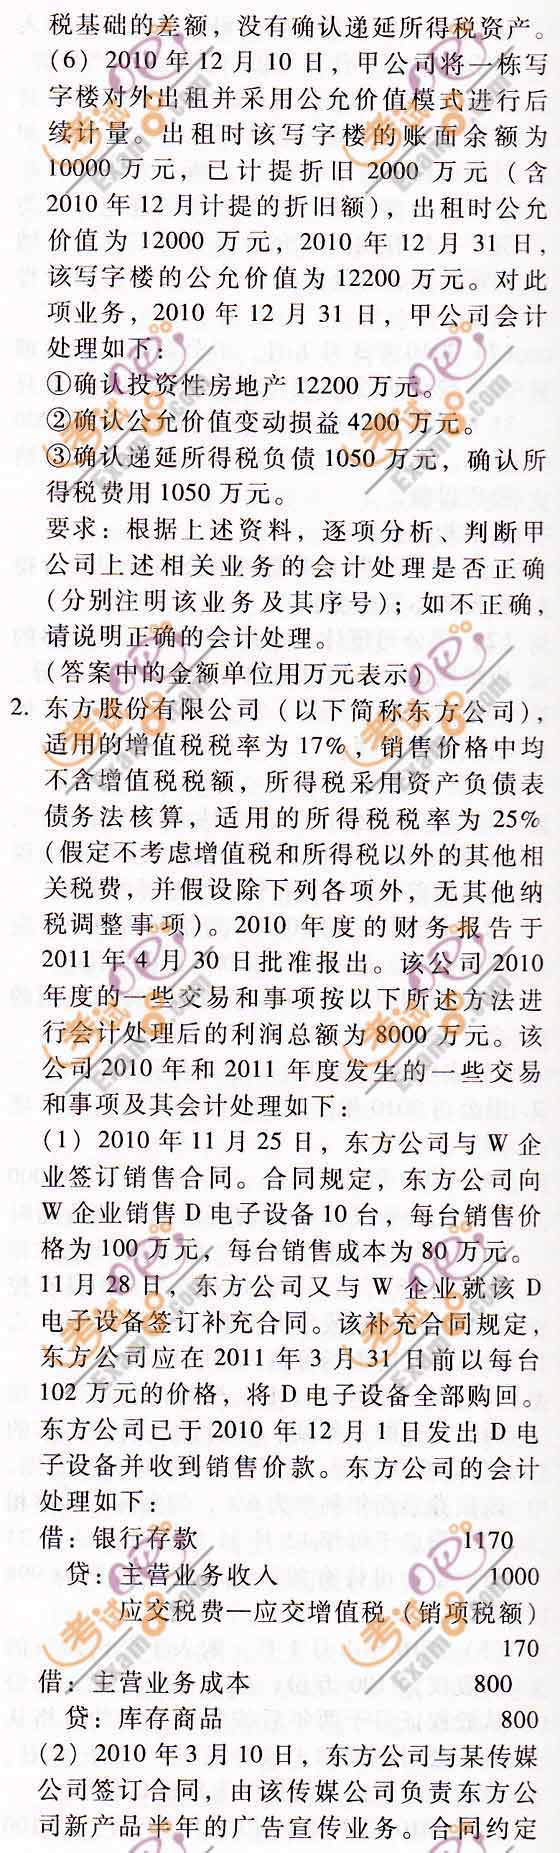 税基础的差额，没有确认递延所得税资产。
(6) 2010年12月10日，甲公司将一栋写
字楼对外出租并采用公允价值模式进行后
续计量。出租时该写字楼的账面余额为
10000万元，已计提折旧2000万元（含
2010年12月计提的折旧额），出租时公允
价值为12000万元，2010年12月31日，
该写字楼的公允价值为12200万元。对此
项业务，2010年12月31日，甲公司会计
处理如下：
①确认投资性房地产12200万元。
②确认公允价值变动损益4200万元。
③确认递延所得税负债1050万元，确认所
得税费用1050万元。
要求：根据上述资料，逐项分析、判断甲
公司上述相关业务的会计处理是否正确
(分别注明该业务及其序号)；如不正确，
请说明正确的会计处理。
(答案中的金额单位用万元表示)
2. 东方股份有限公司（以下简称东方公司），
适用的增值税税率为17%，销售价格中均
不含增值税税额，所得税采用资产负债表
债务法核算，适用的所得税税率为25%
(假定不考虑增值税和所得税以外的其他相
关税费，并假设除下列各项外，无其他纳
税调整事项)。2010年度的财务报告于
2011年4月30日批准报出。该公司2010
年度的一些交易和事项按以下所述方法进
行会计处理后的利润总额为8000万元。该
公司2010年和2011年度发生的一些交易
和事项及其会计处理如下：
(1) 2010年11月25日，东方公司与W企
业签订销售合同。合同规定，东方公司向
W企业销售D电子设备10台，每台销售价
格为100万元，每台销售成本为80万元。
11月28日，东方公司又与W企业就该D
电子设备签订补充合同。该补充合同规定，
东方公司应在2011年3月31日前以每台
102万元的价格，将D电子设备全部购回。
东方公司已于2010年12月1日发出D电
子设备并收到销售价款。东方公司的会计
处理如下：
借：银行存款 1170
贷：主营业务收入 1000
应交税费—应交增值税（销项税额）
170
借：主营业务成本 800
贷：库存商品 800
(2) 2010年3月10日，东方公司与某传媒
公司签订合同，由该传媒公司负责东方公
司新产品半年的广告宣传业务。合同约定
考试
Exam8.com